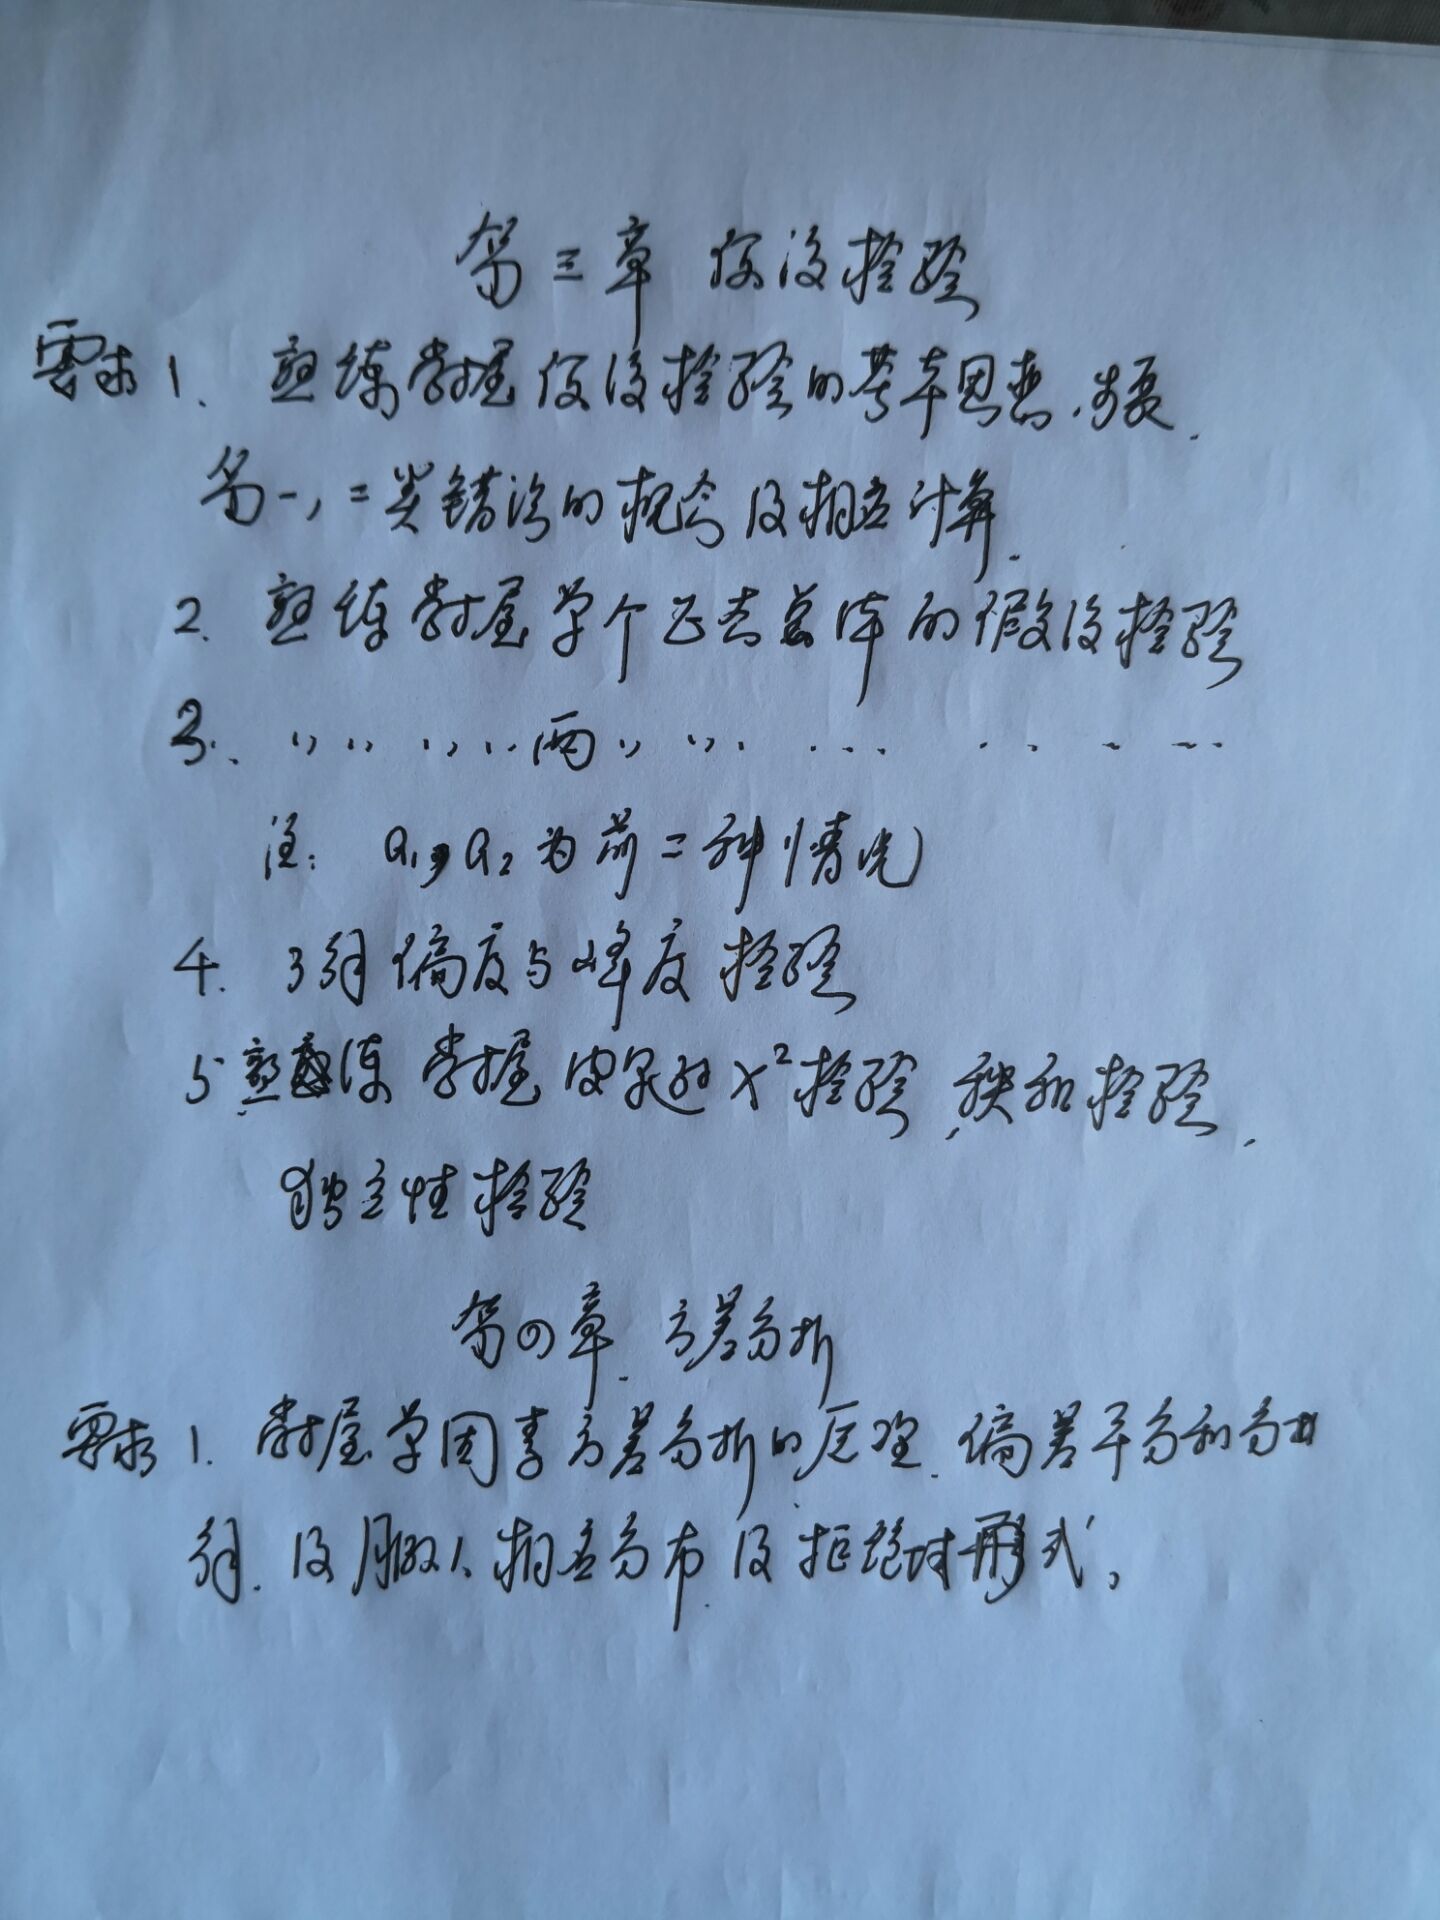 第三章 假设检验
要求 1. 熟练掌握假设检验的基本思想、步骤.
第一,二类错误的概念及相应计算.
2. 熟练掌握单个正态总体的假设检验
3. 〃 〃 〃 〃 两 〃 〃 ... . . - --
注: σ₁, σ₂ 为前二种情况
4. 了解偏度与峰度检验
5 熟练掌握皮尔逊χ²检验, 秩和检验,
独立性检验
第四章. 方差分析
要求 1. 掌握单因素方差分析的原理. 偏差平方和分
解. 及服从相应分布及拒绝域形式。